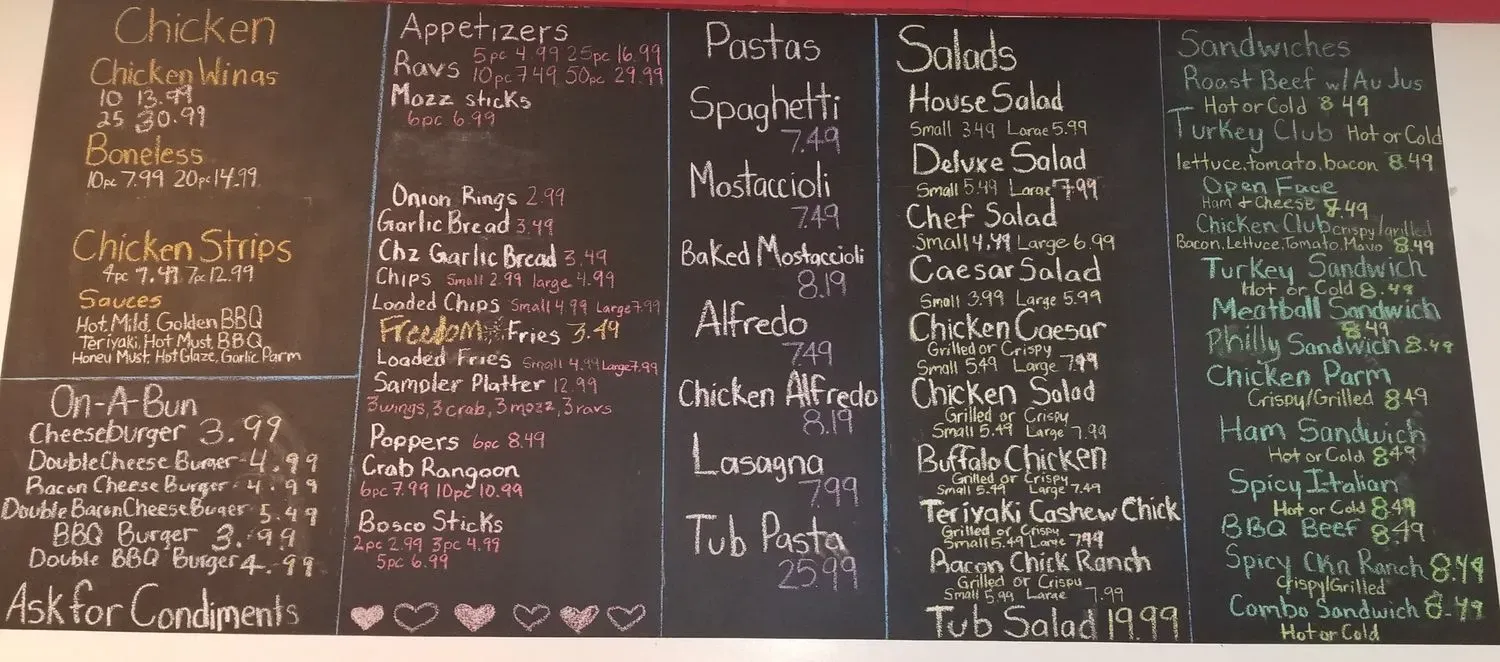 Chicken
Chicken Wings
10 13.99
25 30.99
Boneless
10pc 7.99 20pc 14.99
Chicken Strips
4pc 7.49 7pc 12.99
Sauces
Hot, Mild, Golden BBQ
Teriyaki, Hot Must, BBQ
Honey Must, Hot Glaze, Garlic Parm
On-A-Bun
Cheeseburger 3.99
Double Cheese Burger 4.99
Bacon Cheese Burger 4.99
Double Bacon Cheese Burger 5.49
BBQ Burger 3.99
Double BBQ Burger 4.99
Ask for Condiments
Appetizers
Ravs 5pc 4.99 25pc 16.99
10pc 7.49 50pc 29.99
Mozz sticks
6pc 6.99
Onion Rings 2.99
Garlic Bread 3.49
Chz Garlic Bread 3.49
Chips Small 2.99 large 4.99
Loaded Chips Small 4.99 Large 7.99
Freedom Fries 3.49
Loaded Fries Small 4.99 Large 7.99
Sampler Platter 12.99
3 wings, 3 crab, 3 mozz, 3 ravs
Poppers 6pc 8.49
Crab Rangoon
6pc 7.99 10pc 10.99
Bosco Sticks
2pc 2.99 3pc 4.99
5pc 6.99
Pastas
Spaghetti
7.49
Mostaccioli
7.49
Baked Mostaccioli
8.19
Alfredo
7.49
Chicken Alfredo
8.19
Lasagna
7.99
Tub Pasta
25.99
Salads
House Salad
Small 3.49 Large 5.99
Deluxe Salad
Small 5.49 Large 7.99
Chef Salad
Small 4.49 Large 6.99
Caesar Salad
Small 3.99 Large 5.99
Chicken Caesar
Grilled or Crispy
Small 5.49 Large 7.99
Chicken Salad
Grilled or Crispy
Small 5.49 Large 7.99
Buffalo Chicken
Grilled or Crispy
Small 5.49 Large 7.49
Teriyaki Cashew Chick
Grilled or Crispy
Small 5.49 Large 7.99
Bacon Chick Ranch
Grilled or Crispy
Small 5.99 Large 7.99
Tub Salad 19.99
Sandwiches
Roast Beef w/ Au Jus
Hot or Cold 8.49
Turkey Club Hot or Cold
lettuce, tomato, bacon 8.49
Open Face
Ham & Cheese 8.49
Chicken Club crispy/grilled
Bacon, Lettuce, Tomato, Mayo 8.49
Turkey Sandwich
Hot or Cold 8.49
Meatball Sandwich
8.49
Philly Sandwich 8.49
Chicken Parm
Crispy/Grilled 8.49
Ham Sandwich
Hot or Cold 8.49
Spicy Italian
Hot or Cold 8.49
BBQ Beef 8.49
Spicy Ckn Ranch 8.49
Crispy/Grilled
Combo Sandwich 8.49
Hot or Cold